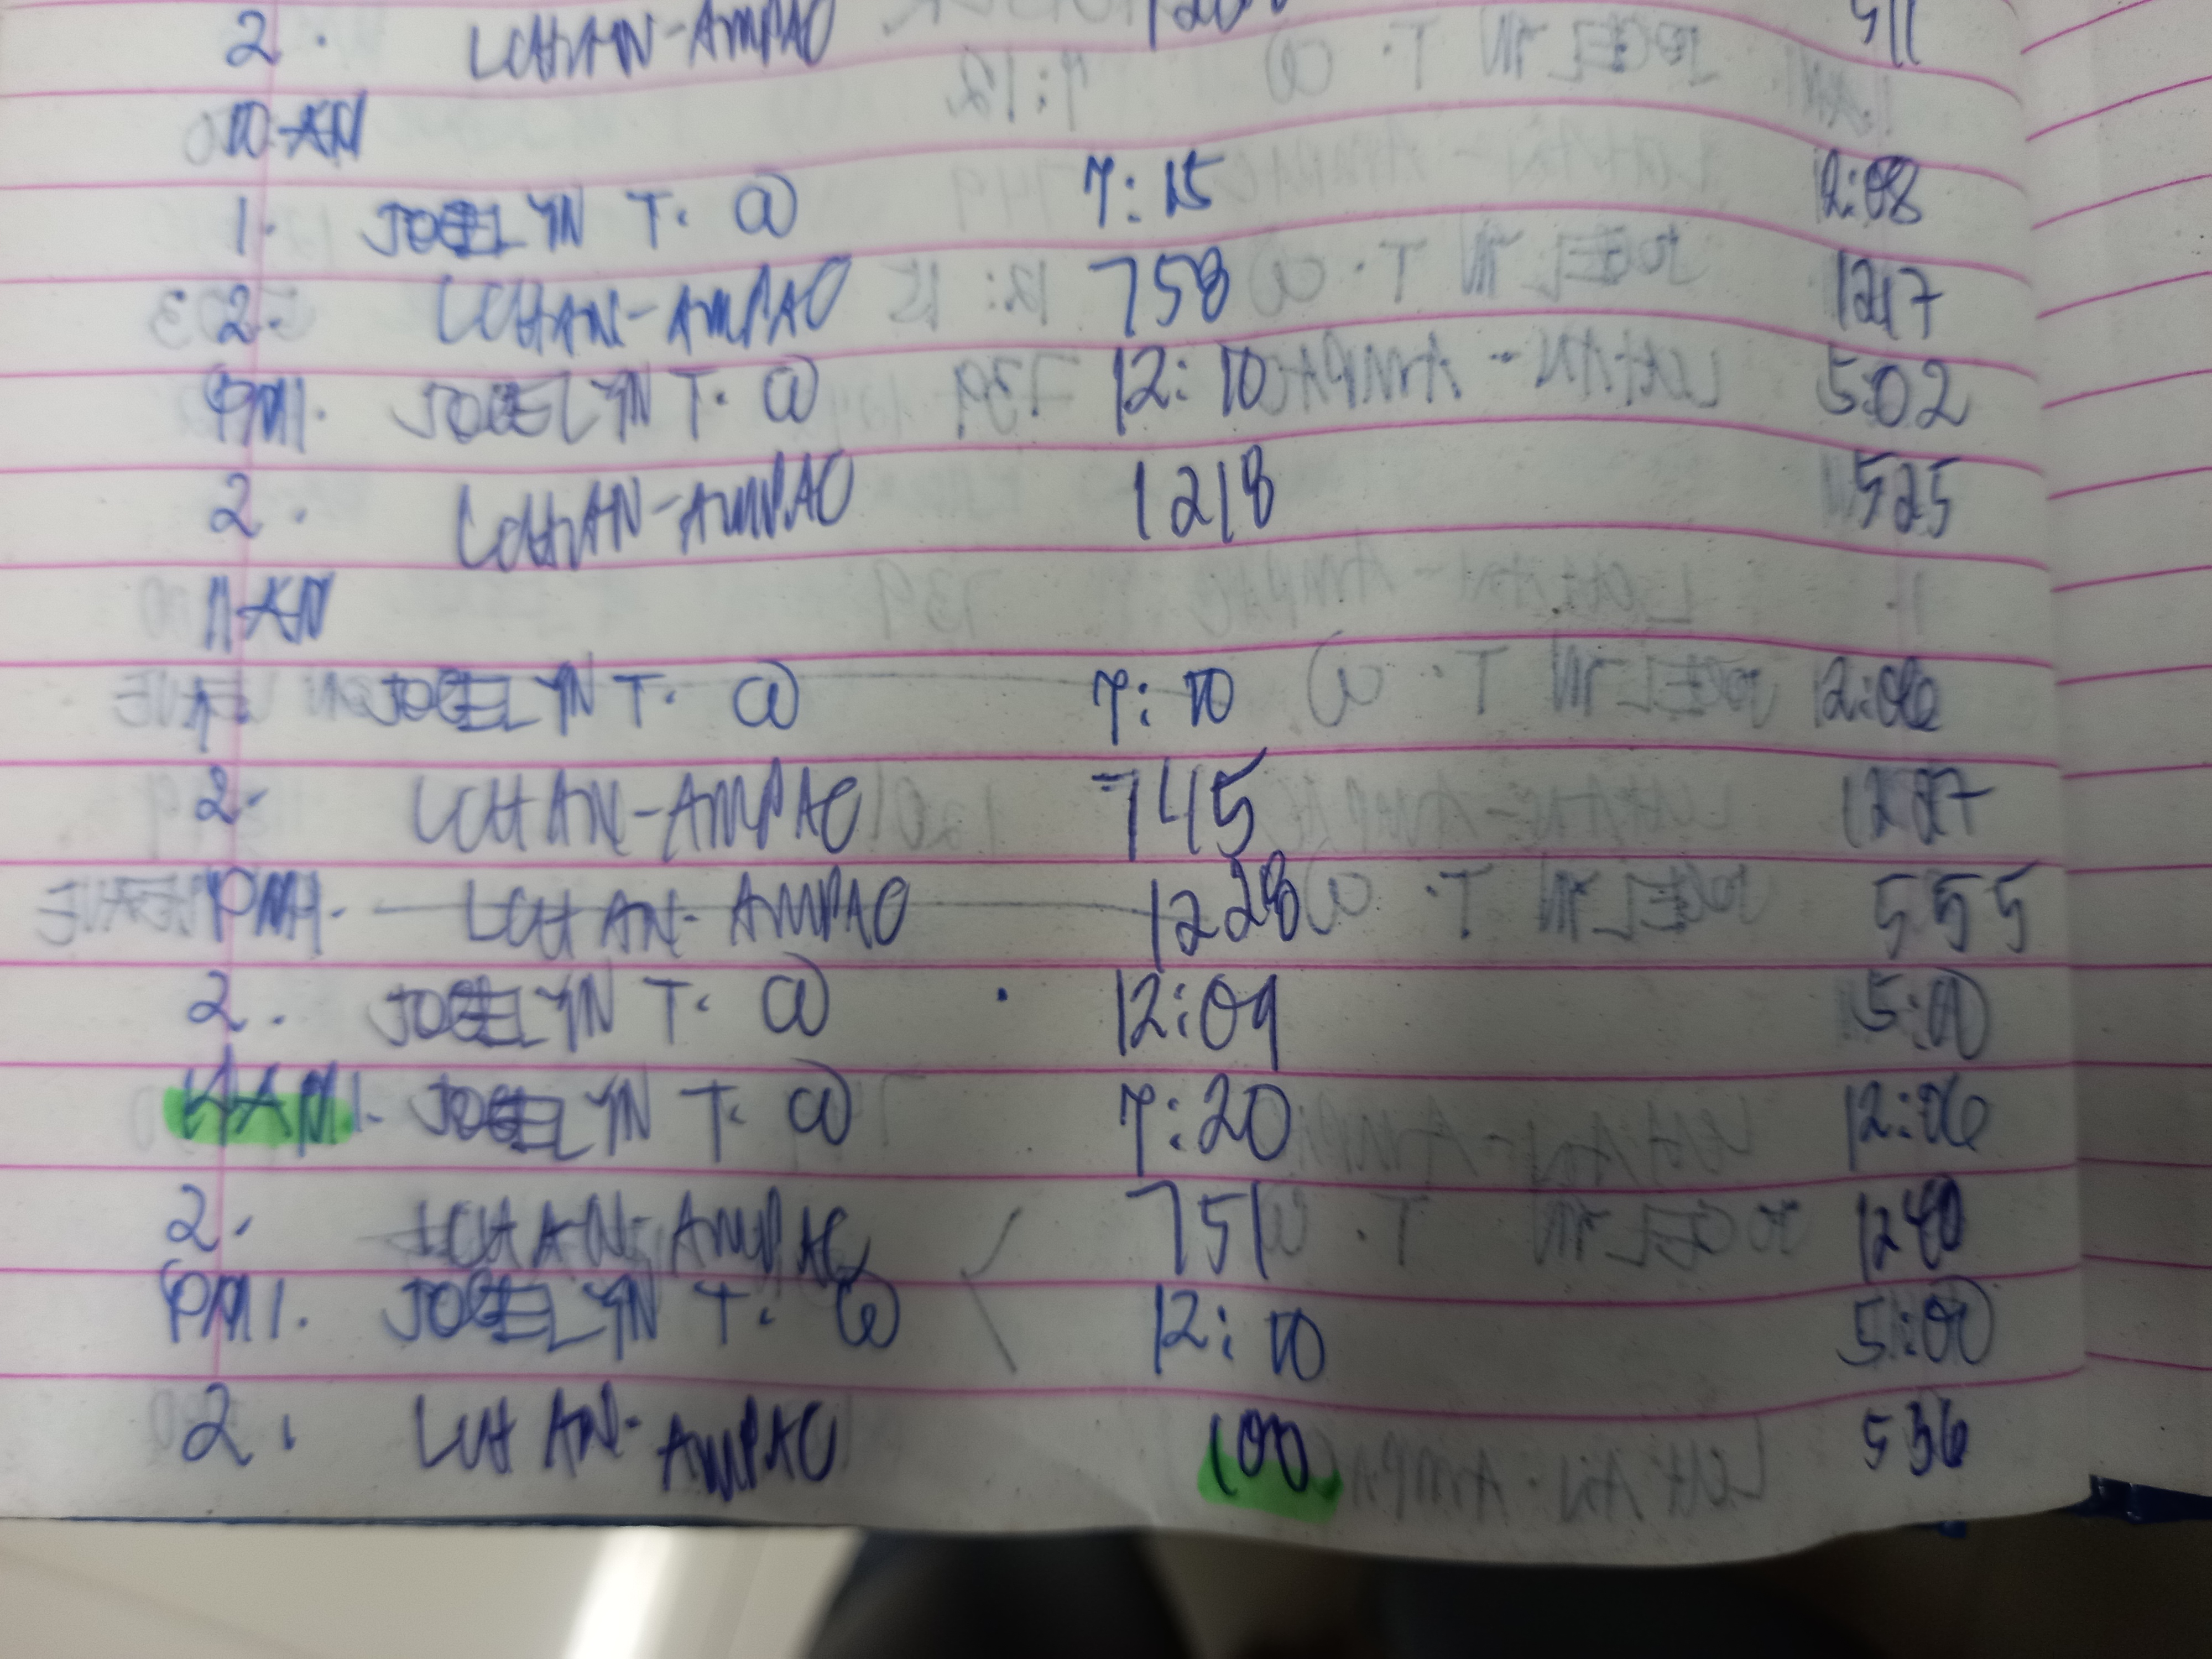 2. LCHAN-AMPAO 120 511
10 AM
1. JOCELYN T. @ 7:15 12:08
2. LCHAN-AMPAO 758 1217
PM1. JOCELYN T. @ 12:10 5:02
2. LCHAN-AMPAO 1218 525
11 AM
JOCELYN T. @ 7:10 12:06
2. LCHAN-AMPAO 745 1227
PM1. LCHAN-AMPAO 1228 555
2. JOCELYN T. @ 12:09 5:00
AM1. JOCELYN T. @ 7:20 12:06
2. LCHAN-AMPAO 751 1240
PM1. JOCELYN T. @ 12:10 5:00
2. LCHAN-AMPAO 100 536